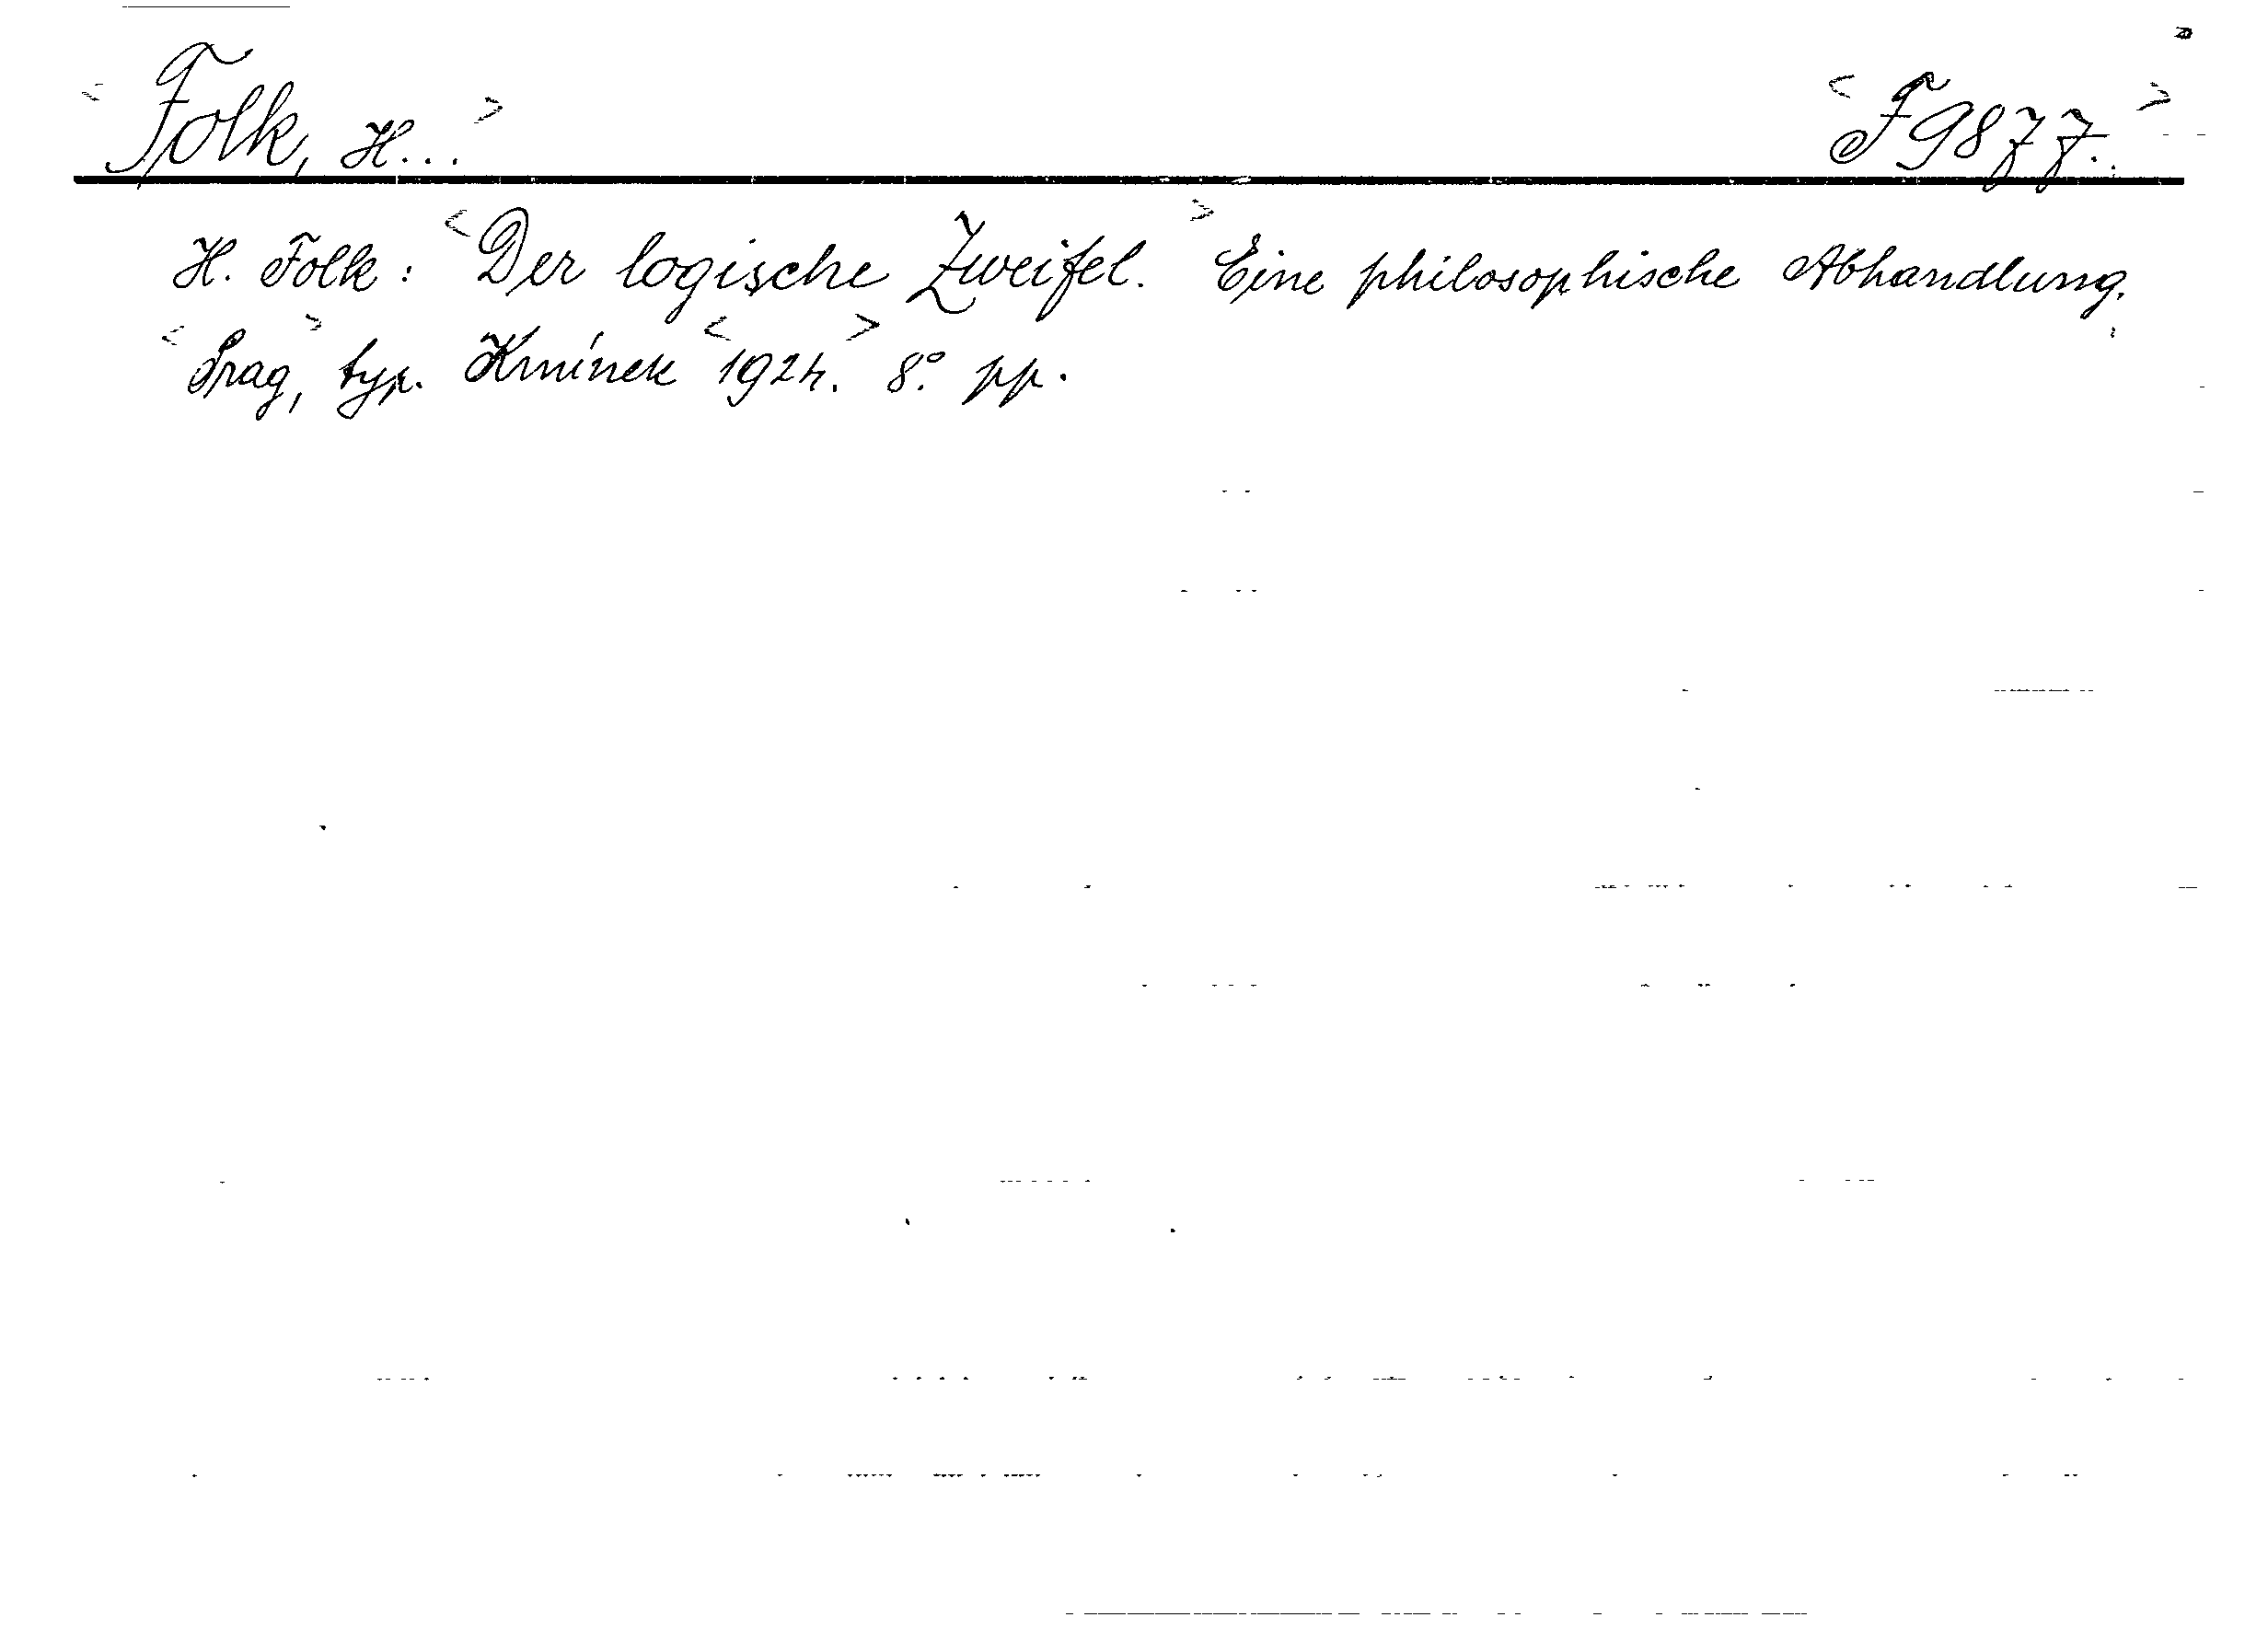 <Folk, H...> <F 9877.>
H. Folk: <Der logische Zweifel.> Eine philosophische Abhandlung.
<Prag,> typ. Kmínek <1924.> 8° pp.